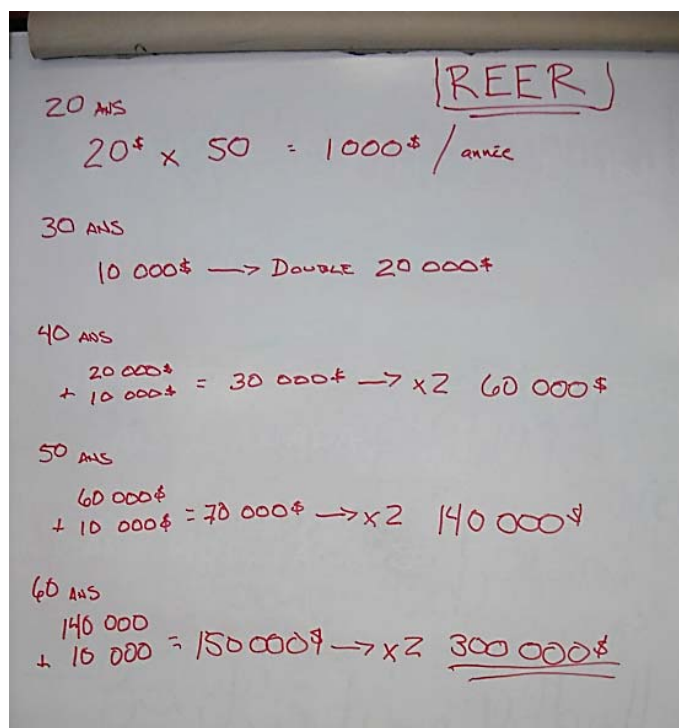 REER
20 ANS
20$ x 50 = 1000$ / année
30 ANS
10 000$ —> DOUBLE 20 000$
40 ANS
20 000$
+ 10 000$ = 30 000$ —> x2 60 000$
50 ANS
60 000$
+ 10 000$ = 70 000$ —> x2 140 000$
60 ANS
140 000
+ 10 000 = 150 000$ —> x2 300 000$